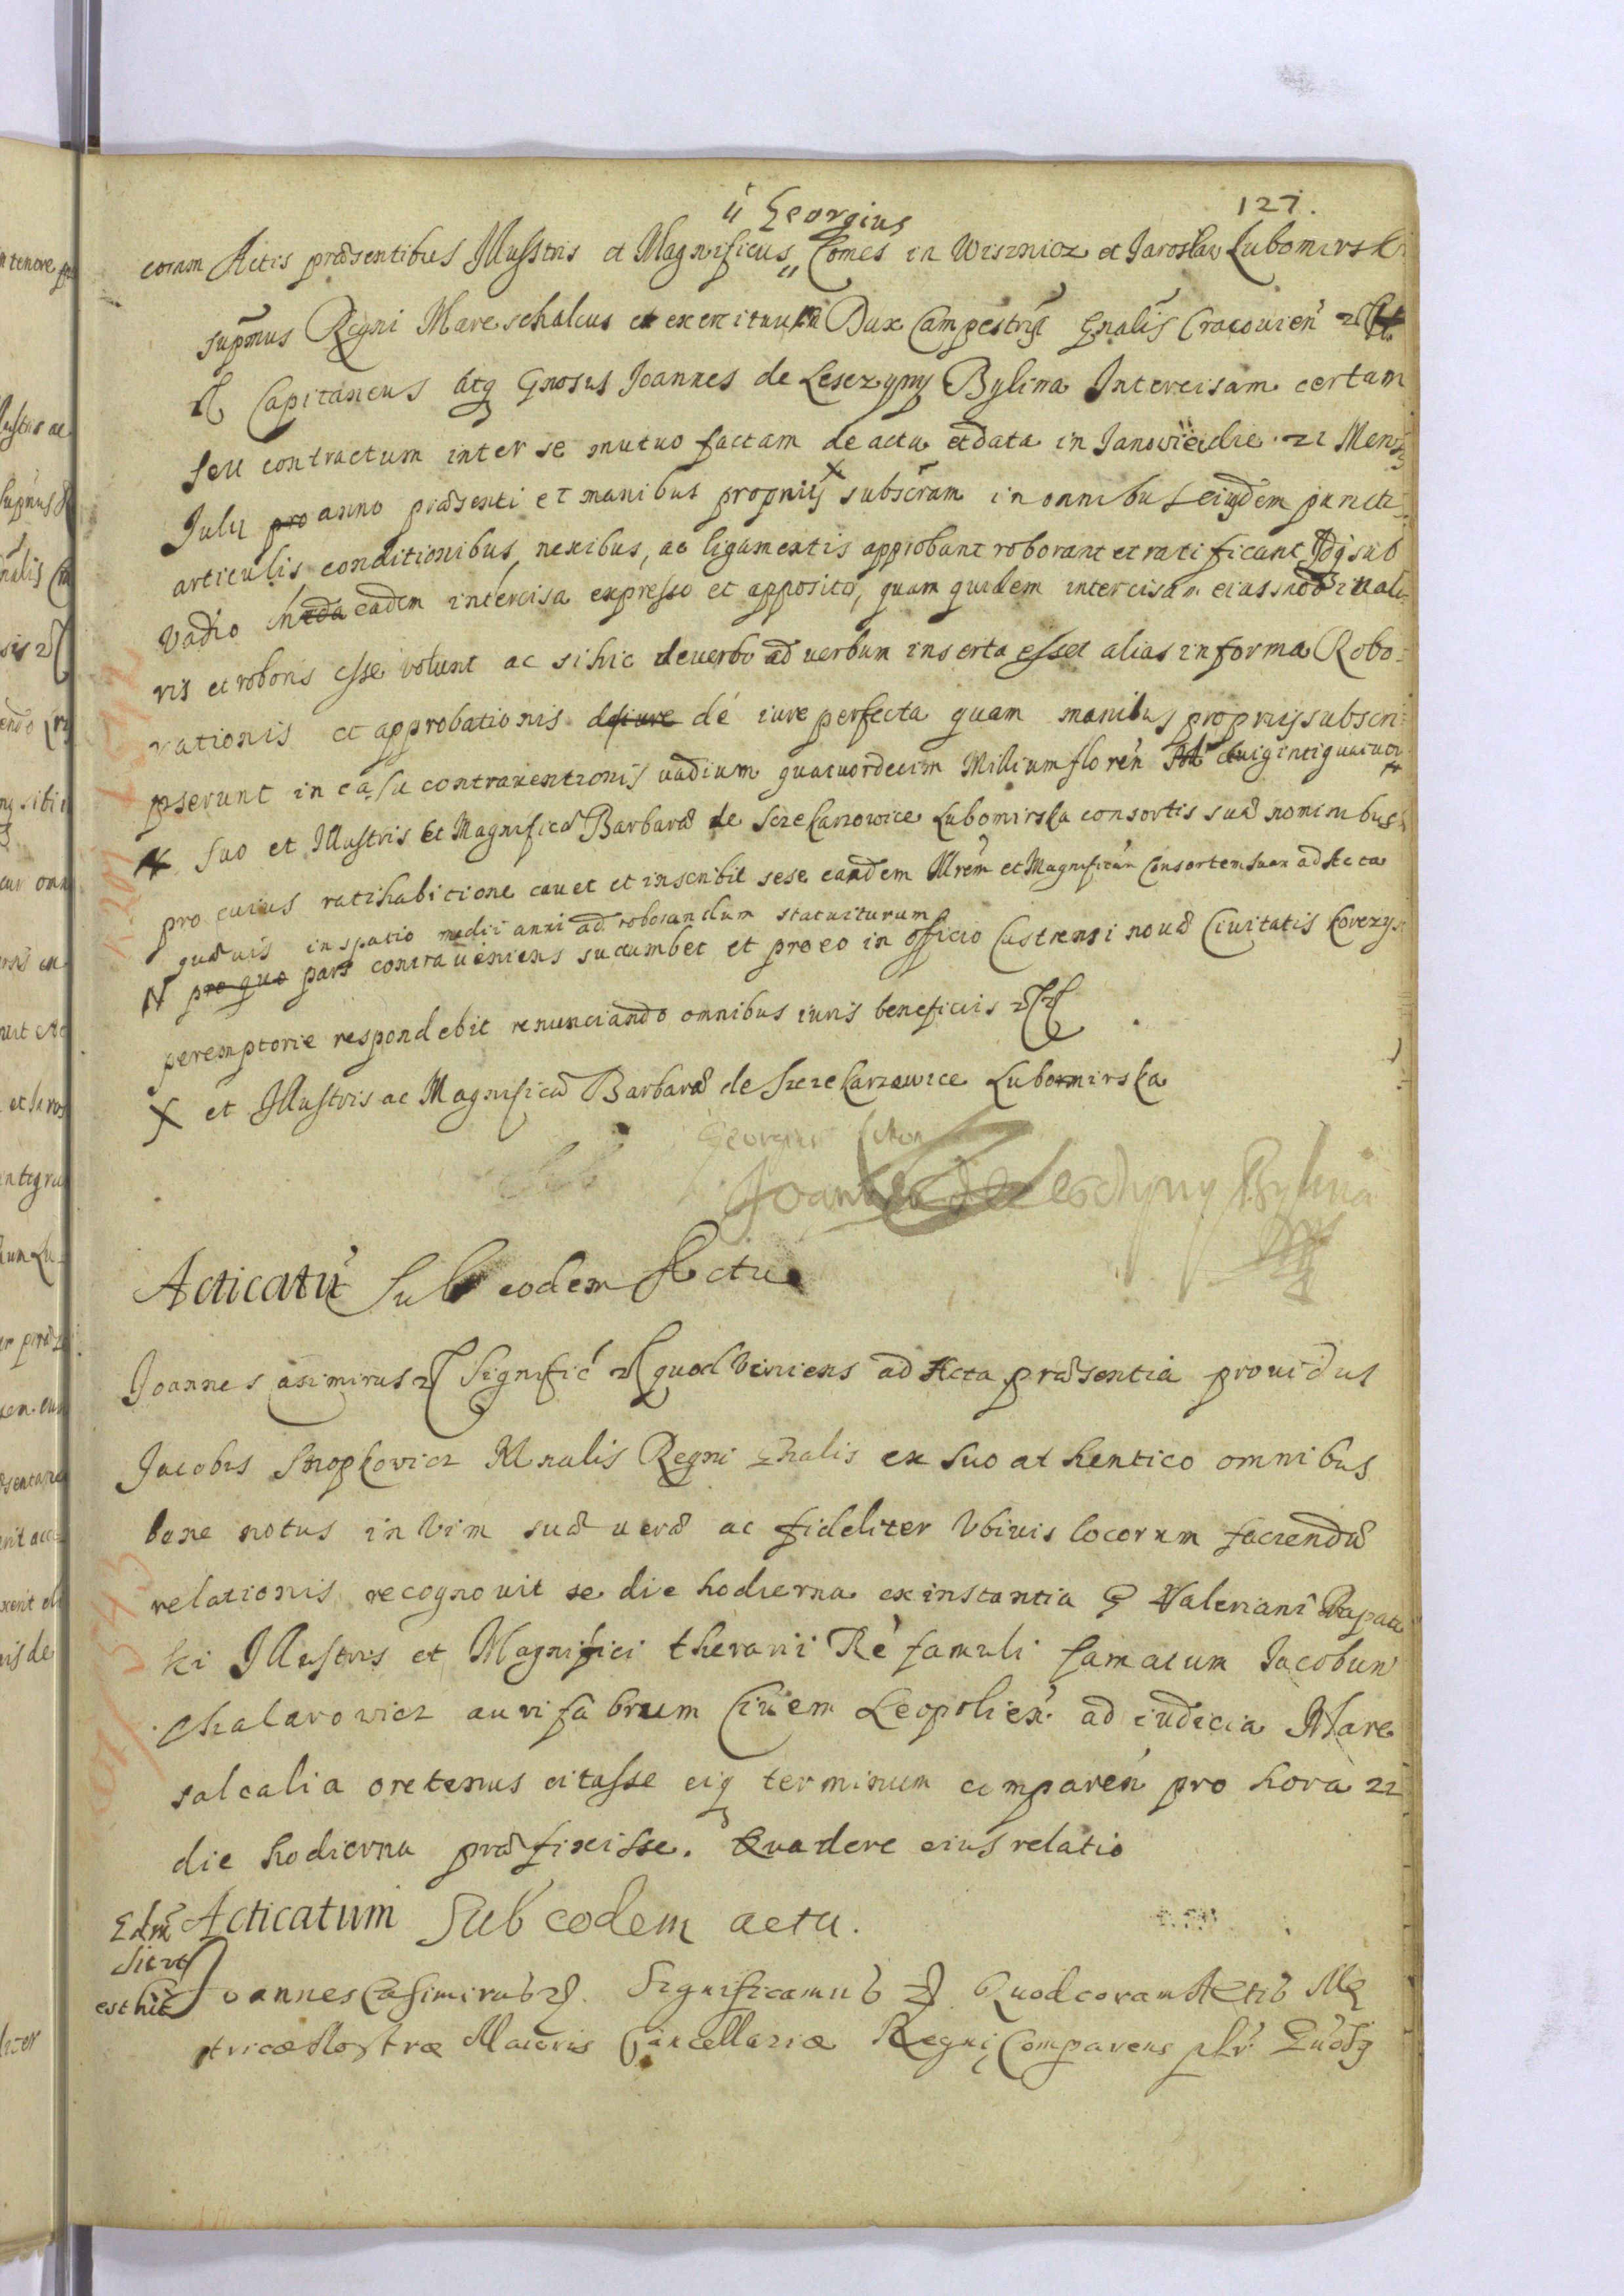 127.
ıı Georgius
coram Actis præsentibus Illustris et Magnificus ıı Comes in Wisznicz et Jaroslaw Lubomirski
supmus Regni Mareschalcus et exercituum Dux Campestris Gnalis Cracovien
Capitaneus atq Gnosus Joannes de Leszczyny Bylina Intercisam certam
seu contractum inter se mutuo factam de actu et data in Janowiec die 21 Mensis
Julii pro anno præsenti et manibus proprijs X subscram in omnibus eiusdem punctis
articulis conditionibus, nexibus, ac ligamentis approbant roborant et ratificant Idq sub
vadio in eadem intercisa expresso et apposito, quam quidem intercisam eiusmodi valo-
ris et roboris esse volunt ac si hic de verbo ad verbum inserta esset alias in forma Robo-
rationis et approbationis de iure de iure perfecta quam manibus proprijs subscri-
pserunt in casu contraventionis vadium quatuordecim Millium floren viginti quatuor
N suo et Illustris et Magnificæ Barbaræ de Szczekarzowice Lubomirska consortis suæ nominibus
pro cuius ratihabitione cavet et inscribit sese eandem Illrem et Magnificam Consortem suam ad Acta
quævis in spatio medii anni ad roborandum statuiturum
N pro quo pars contraveniens sucumbet et pro eo in officio Castrensi novæ Civitatis Korczyn
peremptorie respondebit renunciando omnibus iuris beneficiis
X et Illustris ac Magnificæ Barbaræ de Szczekarzowice Lubomirska
Georgius
Joannes de Leschyny Bylina
Acticatu Sub eodem Actu
Joannes Casimirus Signific quod Veniens ad Acta præsentia providus
Jacobus Snopkovicz Mnalis Regni Gnalis ex suo athentico omnibus
bene notus in Vim suæ veræ ac fideliter Vbivis locorum faciendæ
relationis recognovit se die hodierna ex instantia G Valeriani
ki Illustris et Magnifici Re famuli famatum Jacobum
Chalarowicz aurifabrum Civem Leopolien ad iudicia Mare
salcalia oretenus citasse eiq terminum comparen pro hora 22
die hodierna præfixisse. Qua de re eius relatio
Acticatum Sub eodem actu.
sicut
est hic
Joannes Casimirus Significamus Quod coram Actis Me
tricæ Nostræ Maioris Cancellariæ Regni Comparens
R. 201 L 542
201/543